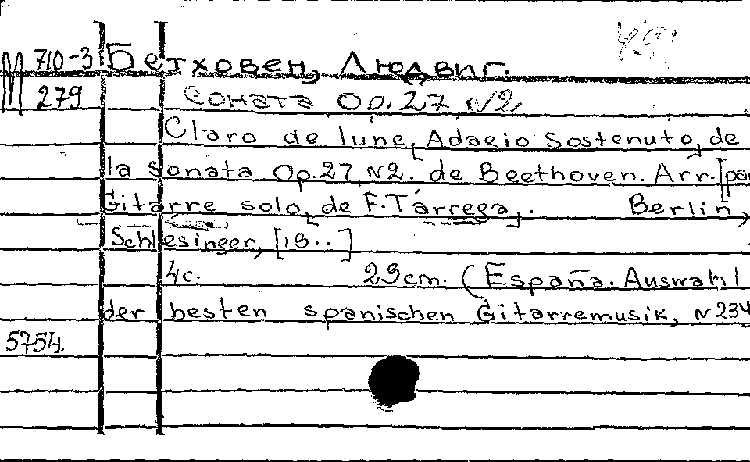 М 710-3 Бетховен, Людвиг.
279 Соната Op. 27 №2
Claro de lune, Adagio Sostenuto, de
la Sonata Op. 27 №2. de Beethoven. Arr. [par
Gitarre solo, de F. Tárrega,. Berlin
Schlesinger, [18..]
4c. 29cm. (España. Auswahl
der besten spanischen Gitarremusik, №234
5754.